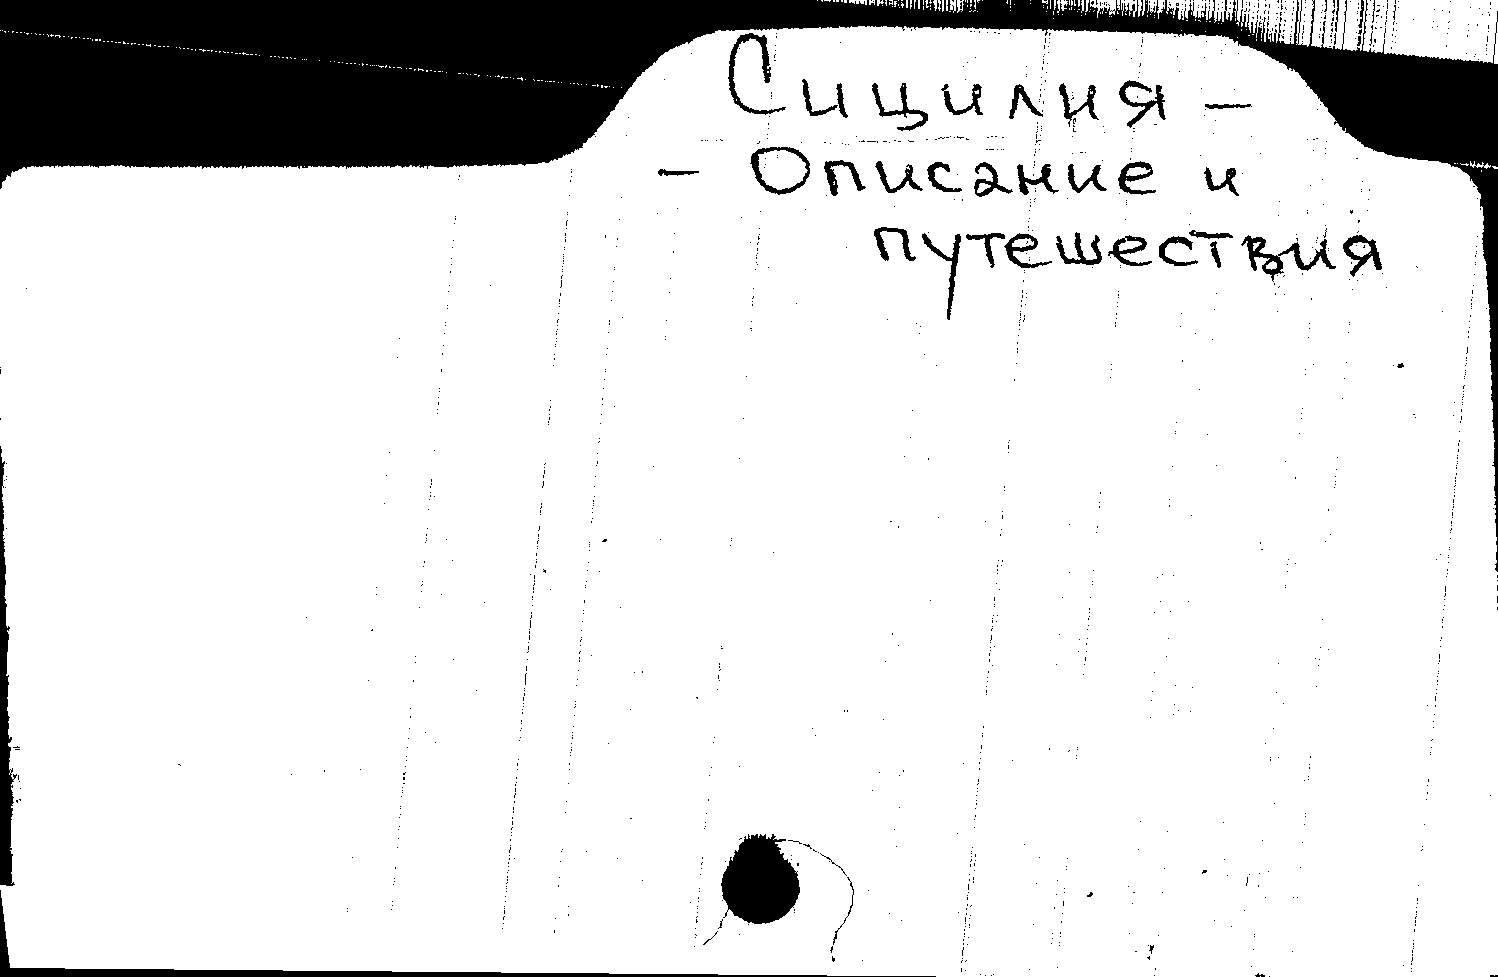 Сицилия –
– Описание и
путешествия